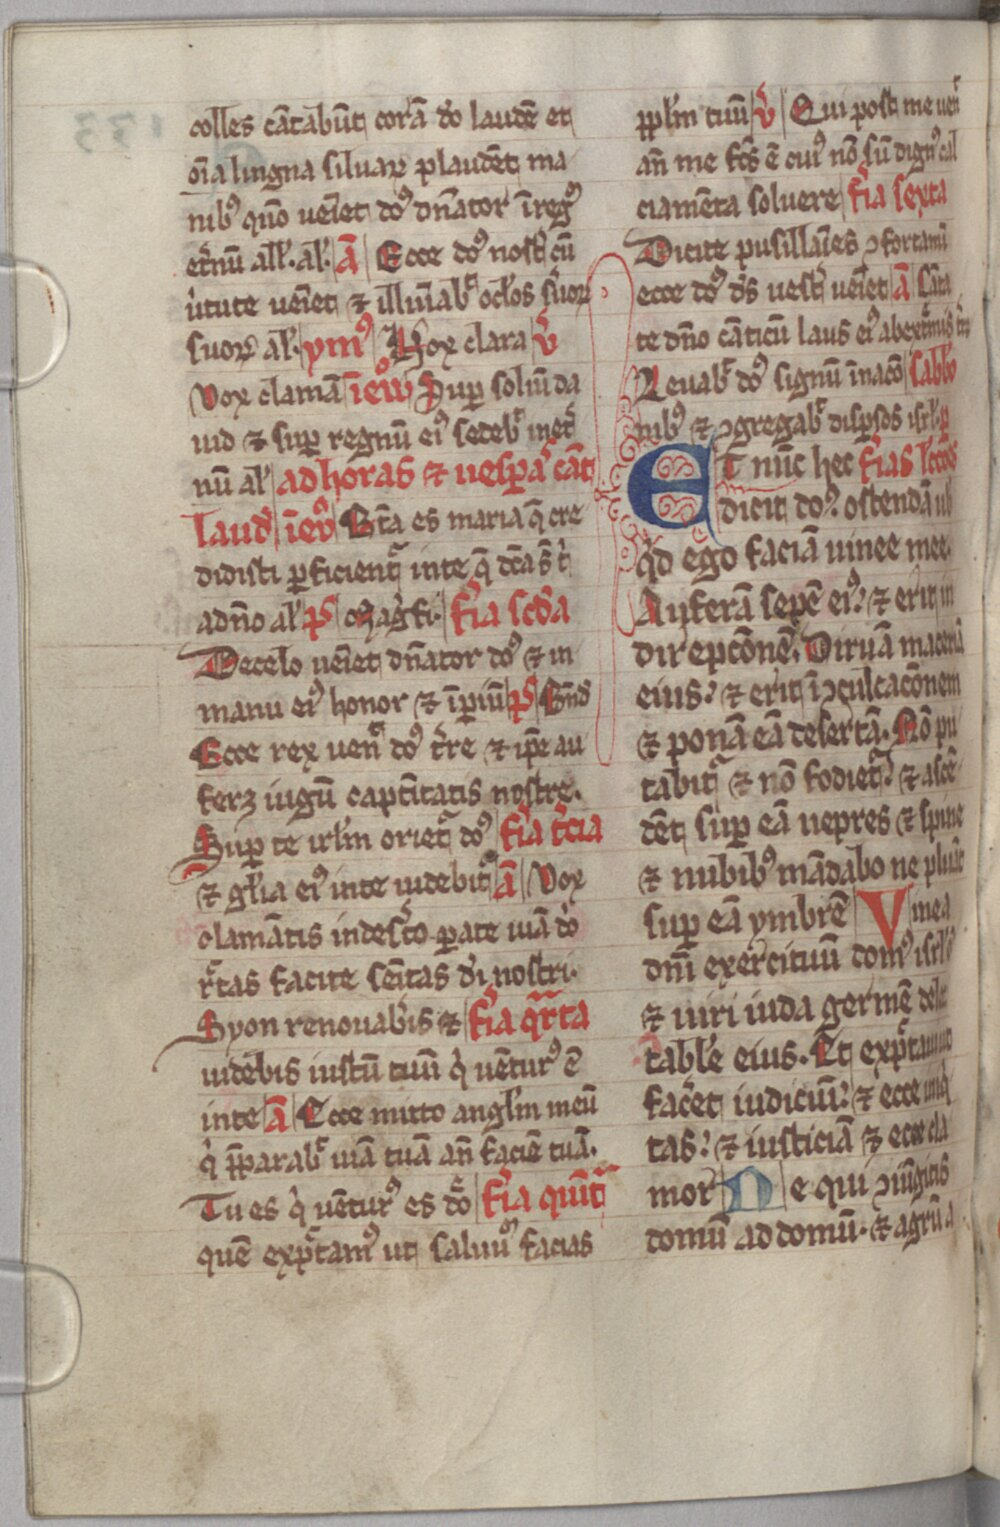 colles cãtabũt corã dõ laudẽ et
oĩa lingna siluaꝝ plaudẽt ma
nibꝰ qũo ueĩet doꝰ dñator ĩ regꝰ
et̃nũ all̃. al̃. ã Ecce doꝰ nost̃ cũ
ũtute ueĩet ⁊ illuĩabᷓ oclõs
suoꝝ al̃. ymꝰ Vox clara v̾
Vox clamã ĩ euͦ Suꝑ soliũ da
uid ⁊ suꝑ regnũ eiꝰ sedebᷓ ĩ net̾
nũ al̃ ad horas ⁊ uesꝑas cãt
laud̾ ĩ euͦ Bt̃a es maria q̃ cre
didisti ꝑficient᷑ inte q̃ dc̃a s̃ t̾
a dño al̃ p̃s Mag̃fi. fĩa sc̃da
De celo ueĩet dñator doꝰ ⁊ in
manu eiꝰ honor ⁊ ĩꝑiũ p̃s Bñds
Ecce rex uen̾ doꝰ t̾re ⁊ ip̃e au
ferꝫ iugũ captĩtatis nostre.
Suꝑ te irl̃m oriet᷑ doꝰ fĩa t̾cia
⁊ gl̃ia eiꝰ inte uidebit᷑ ã Vox
clamãtis in desc̾to ꝑate uiã dõ
r̃tas facite sẽitas dĩ nostri.
Syon renouabis ⁊ fĩa qr̃ta
uidebis iustũ tuũ q̾ uẽturꝰ ẽ
inte ã Ecce mitto angl̃m meũ
q̾ p̃ꝑarabᷓ uiã tuã an̾ faciẽ tuã.
Tu es q̾ uẽturꝰ es dõ fĩa quĩt᷑
quẽ exp̃tamꝰ ut saluũ facias
ppl̃m tuũ v̾ Qui post me uen̾
an̾ me fc̃s ẽ cuiꝰ nõ sũ dignꝰ cal
ciamẽta soluere fĩa sexta
Dicite pusillaĩes ꝯfortamĩ
ecce doꝰ d̾s uest̃ ueĩet ã Cãta
te dño cãticũ laus eiꝰ ab ext̾mis t̾re
Leuabᷓ doꝰ signũ ĩ nacõ sabbo
nibꝰ ⁊ ꝯgregabᷓ disp̃sos isrl̃. ꝑ
Et nũc hec fĩas lc̃cõs
dicit doꝰ. ostendã uob
q̾d ego faciã uinee mee.
Auferã sepẽ eiꝰ. ⁊ erit in
direpcõnẽ. Diruã maceriã
eius. ⁊ erit ĩ ꝯculcacõnem
⁊ ponã eã desertã. Nõ pu
tabit᷑ ⁊ nõ fodiet᷑. ⁊ ascẽ
dẽt suꝑ eã uepres ⁊ spine
⁊ nubibꝰ mãdabo ne pluãt
suꝑ eã ymbrẽ Vinea
dñi exercituũ domꝰ isrl̃ ẽ
⁊ uiri iuda germẽ delec
table eius. Et exp̃taui ut
fac̾et iudiciũ. ⁊ ecce iniq̾
tas. ⁊ iusticiã ⁊ ecce cla
mor Ve qui ꝯiũgitis
domũ ad domũ. ⁊ agrũ a